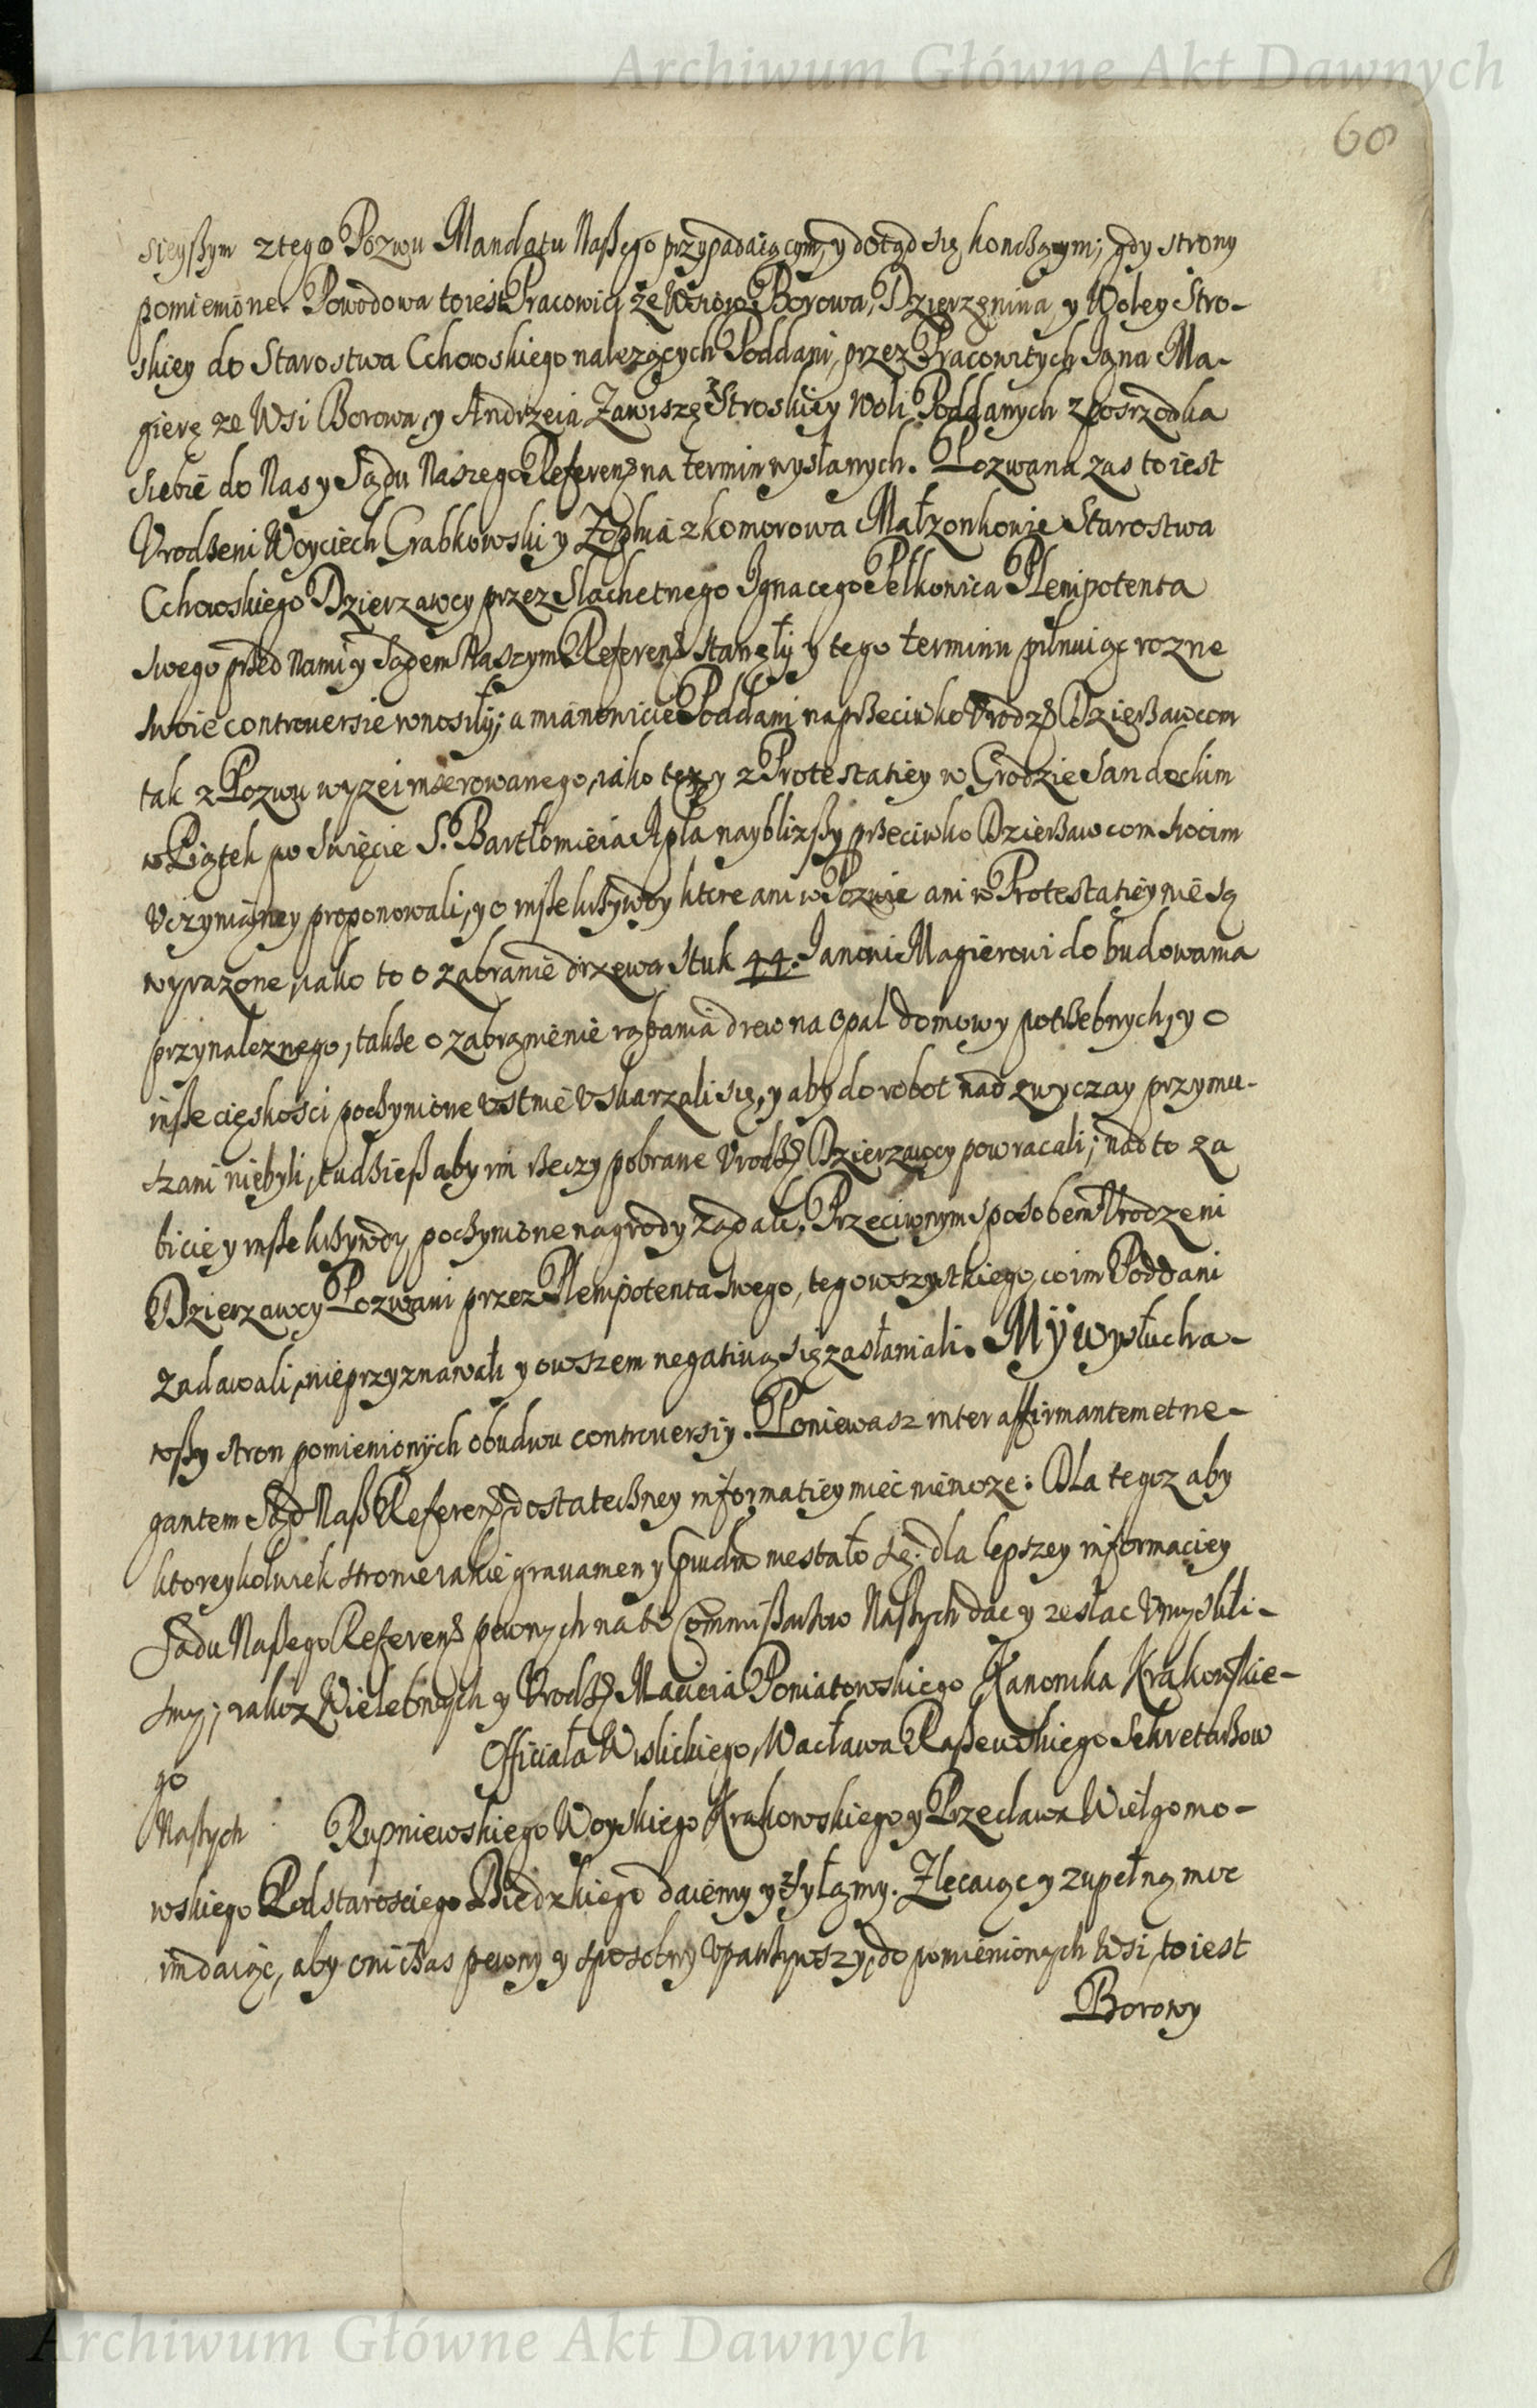 Archiwum Główne Akt Dawnych
68
sieyszym z tego Pozwu Mandatu Naszego przypadaiącym, y dotąd się kończącym; gdy strony
pomienione. Powodowa to iest Pracowici ze Wsiow Borowa, Dzierzęnina, y Woley Stro-
skiey do Starostwa Cchowskiego nalezących Poddani, przez Pracowitych Jana Ma-
gierę ze Wsi Borowa, y Andrzeia Zawiszę z Stroskiey Woli Poddanych z posrzodka
siebie do Nas y Sądu Naszego Referen: na termin wysłanych. Pozwana zas to iest
Vrodzeni Woyciech Grabkowski y Zophia z Komorowa Małzonkowie Starostwa
Cchowskiego Dzierzawcy przez Slachetnego Ignacego Pełkonica Plenipotenta
swego przed Nami y Sądem Naszym Referen: stanęły y tego terminu pilnuiąc rozne
swoie controversie wnosiły; a mianowicie Poddani naprzeciwko Vrodz: Dzierzawcom
tak z Pozwu wyzei inserowanego, iako tez y z Protestatiey w Grodzie Sandeckim
w Piątek po Swięcie S. Bartłomieia Apła nayblizszy przeciwko Dzierzawcom swoim
Vczynioney proponowali, y o insze krzywdy ktore ani w Pozwie ani w Protestatiey nie są
wyrazone, iako to o zabranie drzewa sztuk 44. Janowi Magierowi do budowania
przynaleznego, takze o zabronienie rąbania drew na opał domowy potrzebnych, y o
insze cięskosci poczynione Vstnie Vskarzali się, y aby do robot nad zwyczay przymu-
szani niebyli, tudziesz aby im rzeczy pobrane Vrodz: Dzierzawcy powracali; nad to za
bicie y insze krzywdy poczynione nagrody ządali. Przeciwnym sposobem Vrodzeni
Dzierzawcy Pozwani przez Plenipotenta swego, tego wszystkiego, co im Poddani
zadawali, nieprzyznawali y owszem negativą się zasłaniali. My wysłucha-
wszy stron pomienionych obudwu controversiy. Poniewasz inter affirmantem et ne-
gantem Sąd Nasz Referen: dostateczney informatiey miec niemoze: Dla tegoz aby
ktoreykolwiek stronie iakie gravamen y niestało się. dla lepszey informaciey
Sadu Naszego Referen: pewnych na to Commissarzow Naszych dac y zesłac Vmyslili-
smy; iakoz Wielebnych y Vrodz: Macieia Poniatowskiego Kanonika Krakowskie-
go Officiała Wislickiego, Wacława Raszewskiego Sekretarzow
Naszych Rupniewskiego Woyskiego Krakowskiego y Przecława Wielgomo-
wskiego Podstarosciego Bieckiego daiemy y zsyłamy. Zlecaiąc y zupełną moc
im daiąc, aby oni czas pewny y sposobny Vpatrzywszy, do pomienionych Wsi, to iest
Borowy
Archiwum Główne Akt Dawnych